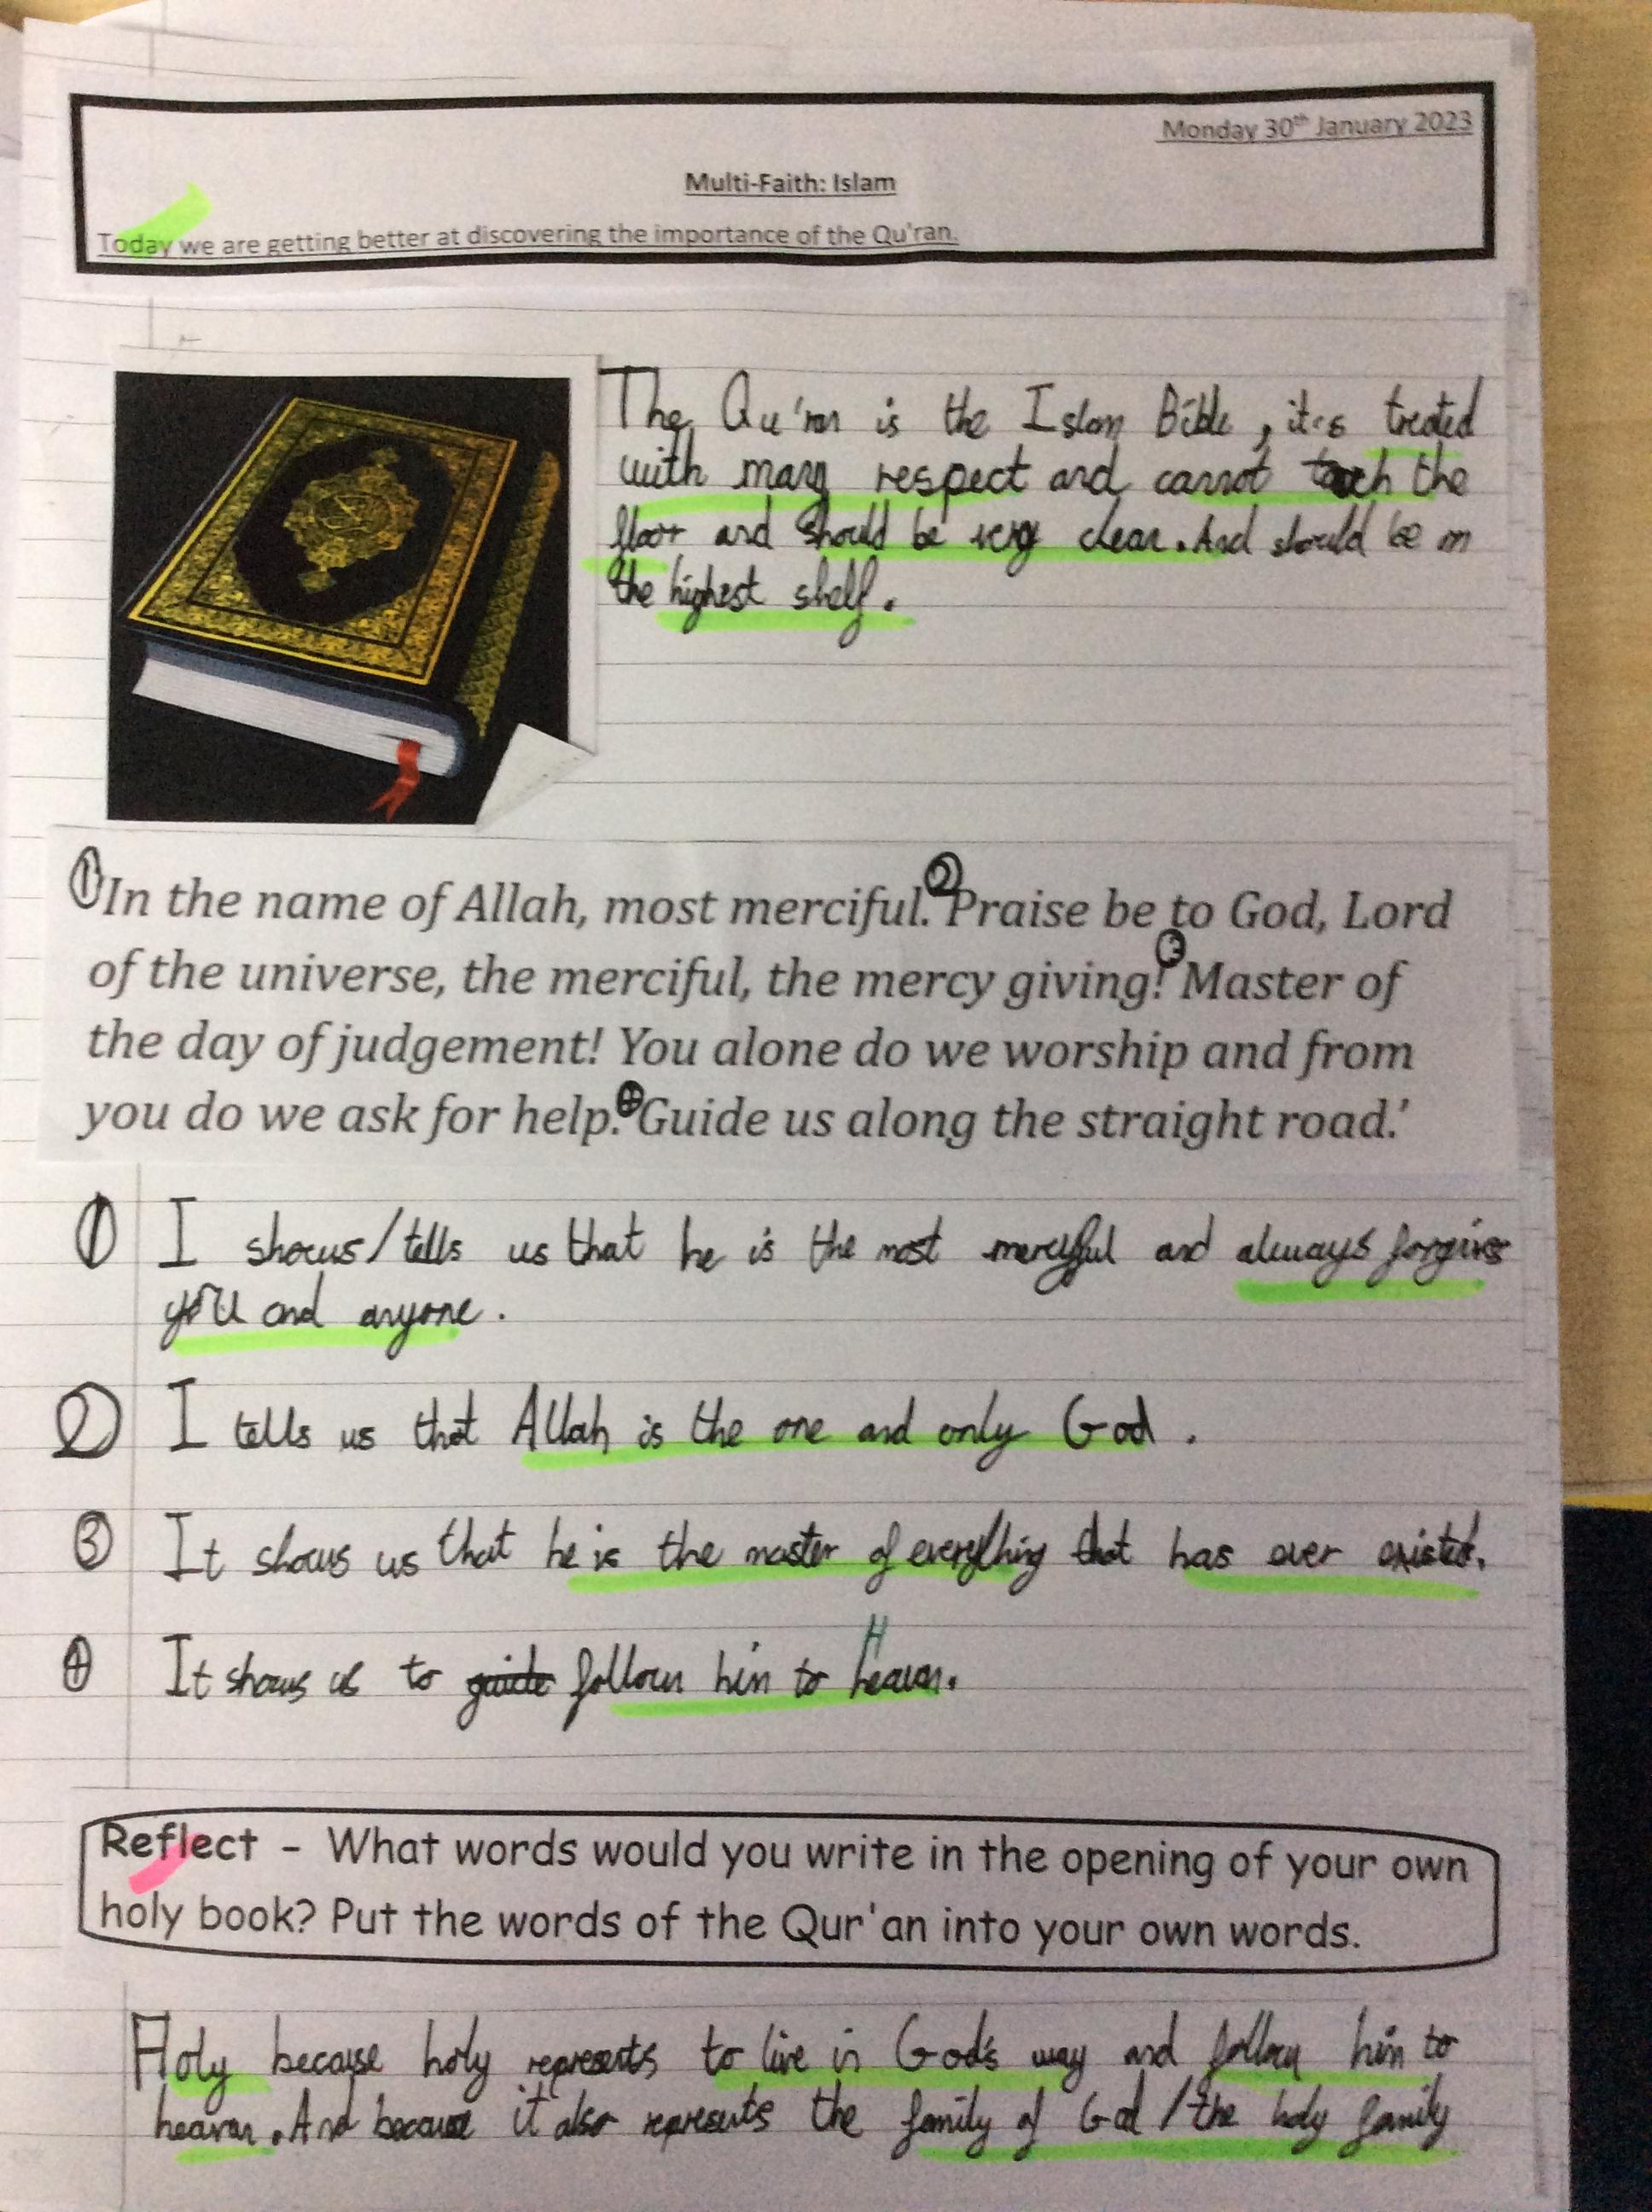 Monday 30th January 2023
Multi-Faith: Islam
Today we are getting better at discovering the importance of the Qu'ran.
The Qu'ran is the Islam Bible, it's treated
with many respect and cannot touch the
floor and should be very clean. And should be on
the highest shelf.
① In the name of Allah, most merciful. ② Praise be to God, Lord
of the universe, the merciful, the mercy giving! ③ Master of
the day of judgement! You alone do we worship and from
you do we ask for help. ④ Guide us along the straight road.'
① I shows/tells us that he is the most merciful and always forgives
you and anyone.
② I tells us that Allah is the one and only God.
③ It shows us that he is the master of everything that has ever existed.
④ It shows us to guide follow him to Heaven.
Reflect - What words would you write in the opening of your own
holy book? Put the words of the Qur'an into your own words.
Holy because holy represents to live in God's way and follow him to
heaven. And because it also represents the family of God/the holy family